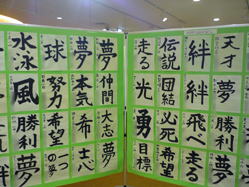 水泳
球
夢
夢
風
努力
本気
仲間
勝利
希望
大志
夢
一つの夢
夢
走る
伝説
絆
天才
光
団結
絆
夢
勇
必死
飛べ
勝利
目標
希望
走る
夢